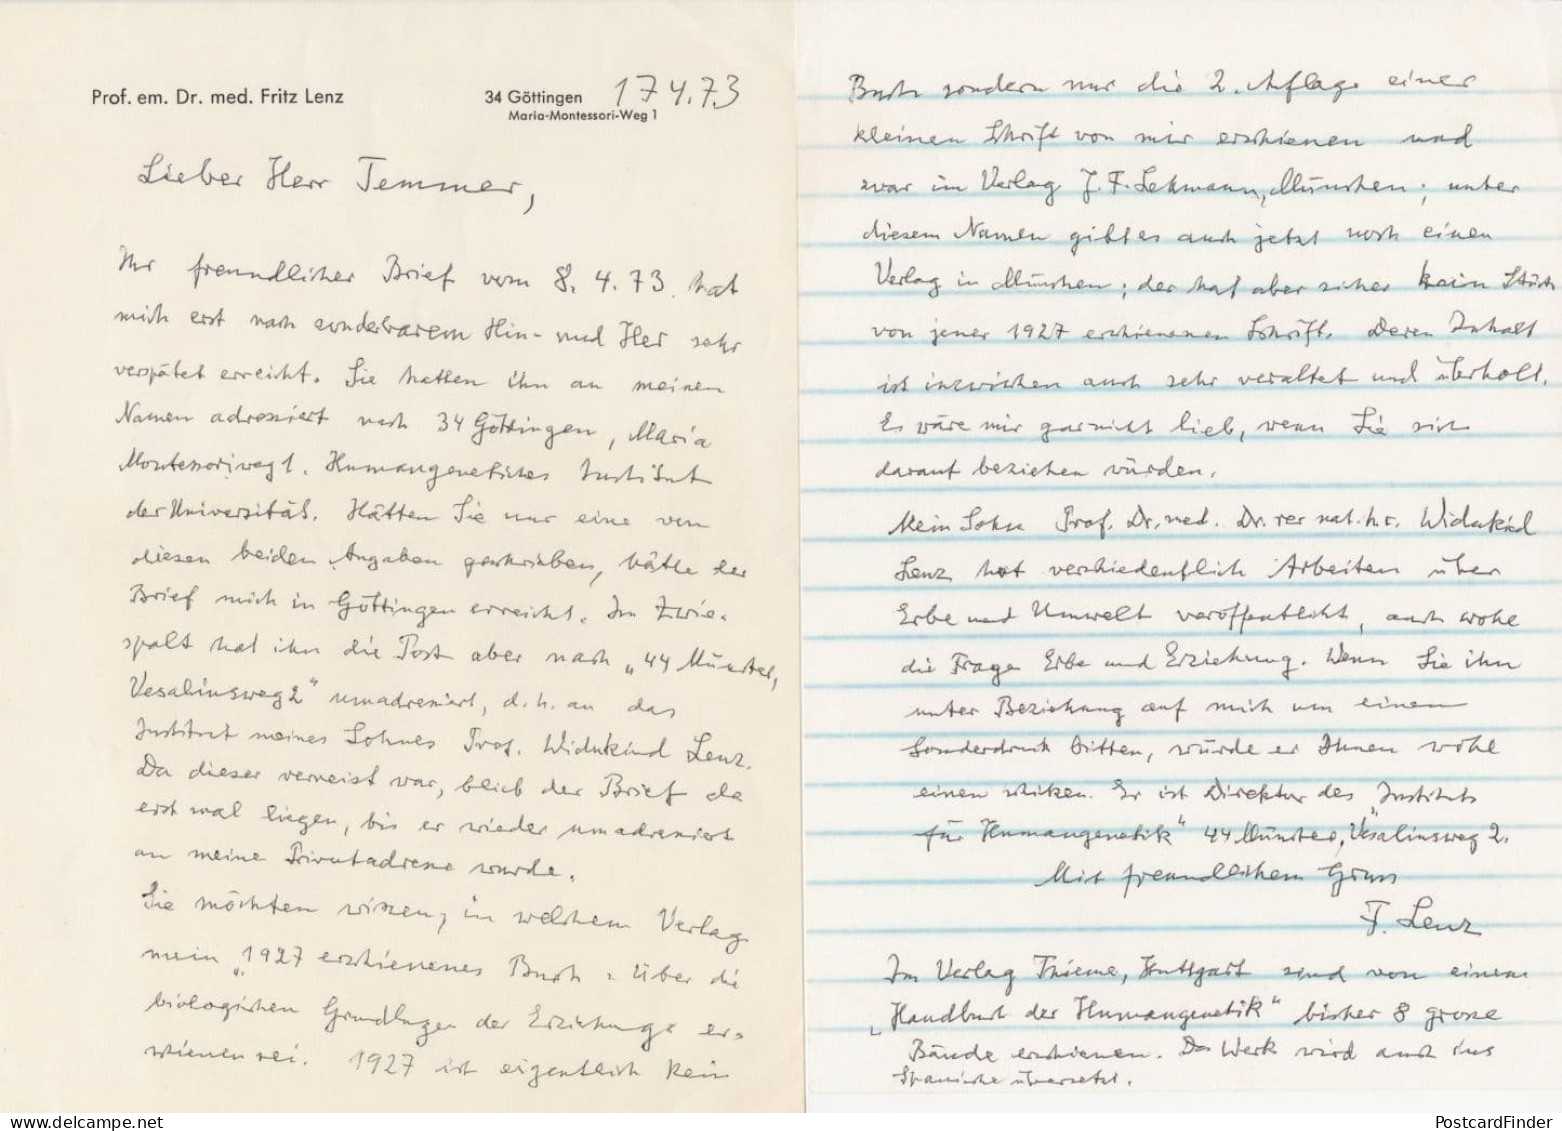 Prof. em. Dr. med. Fritz Lenz
34 Göttingen 17 4.73
Maria-Montessori-Weg 1
Lieber Herr Temmer,
Ihr freundlicher Brief vom 8. 4. 73 hat
mich erst nach sonderbarem Hin- und Her sehr
verspätet erreicht. Sie hatten ihn an meinen
Namen adressiert nach 34 Göttingen, Maria
Montessoriweg 1. Humangenetisches Institut
der Universität. Hätten Sie nur eine von
diesen beiden Angaben geschrieben, hätte der
Brief mich in Göttingen erreicht. Im Zwie-
spalt hat ihn die Post aber nach „44 Münster,
Vesaliusweg 2“ umadressiert, d. h. an das
Institut meines Sohnes Prof. Widukind Lenz.
Da dieser verreist war, blieb der Brief da
erst mal liegen, bis er wieder umadressiert
an meine Privatadresse wurde.
Sie möchten wissen, in welchem Verlag
mein „1927 erschienenes Buch : über die
biologischen Grundlagen der Erziehung er-
schienen sei. 1927 ist eigentlich kein
Buch sondern nur die 2. Aflage einer
kleinen Schrift von mir erschienen und
zwar im Verlag J. F. Lehmann, München; unter
diesem Namen gibt es auch jetzt noch einen
Verlag in München; der hat aber sicher kein Stück
von jener 1927 erschienenen Schrift. Deren Inhalt
ist inzwischen auch sehr veraltet und überholt.
Es wäre mir garnicht lieb, wenn Sie sich
darauf beziehen würden.
Mein Sohn Prof. Dr. med. Dr. rer nat. h c. Widukind
Lenz hat verschiedentlich Arbeiten über
Erbe und Umwelt veröffentlicht, auch wohl
die Frage Erbe und Erziehung. Wenn Sie ihn
unter Beziehung auf mich um einen
Sonderdruck bitten, würde er Ihnen wohl
einen schicken. Er ist Direktor des „Instituts
für Humangenetik“ 44 Münster, Vesaliusweg 2.
Mit freundlichem Gruss
F. Lenz
Im Verlag Thieme, Stuttgart sind von einem
„Handbuch der Humangenetik“ bisher 8 grosse
Bände erschienen. Das Werk wird auch ins
Spanische übersetzt.
PostcardFinder